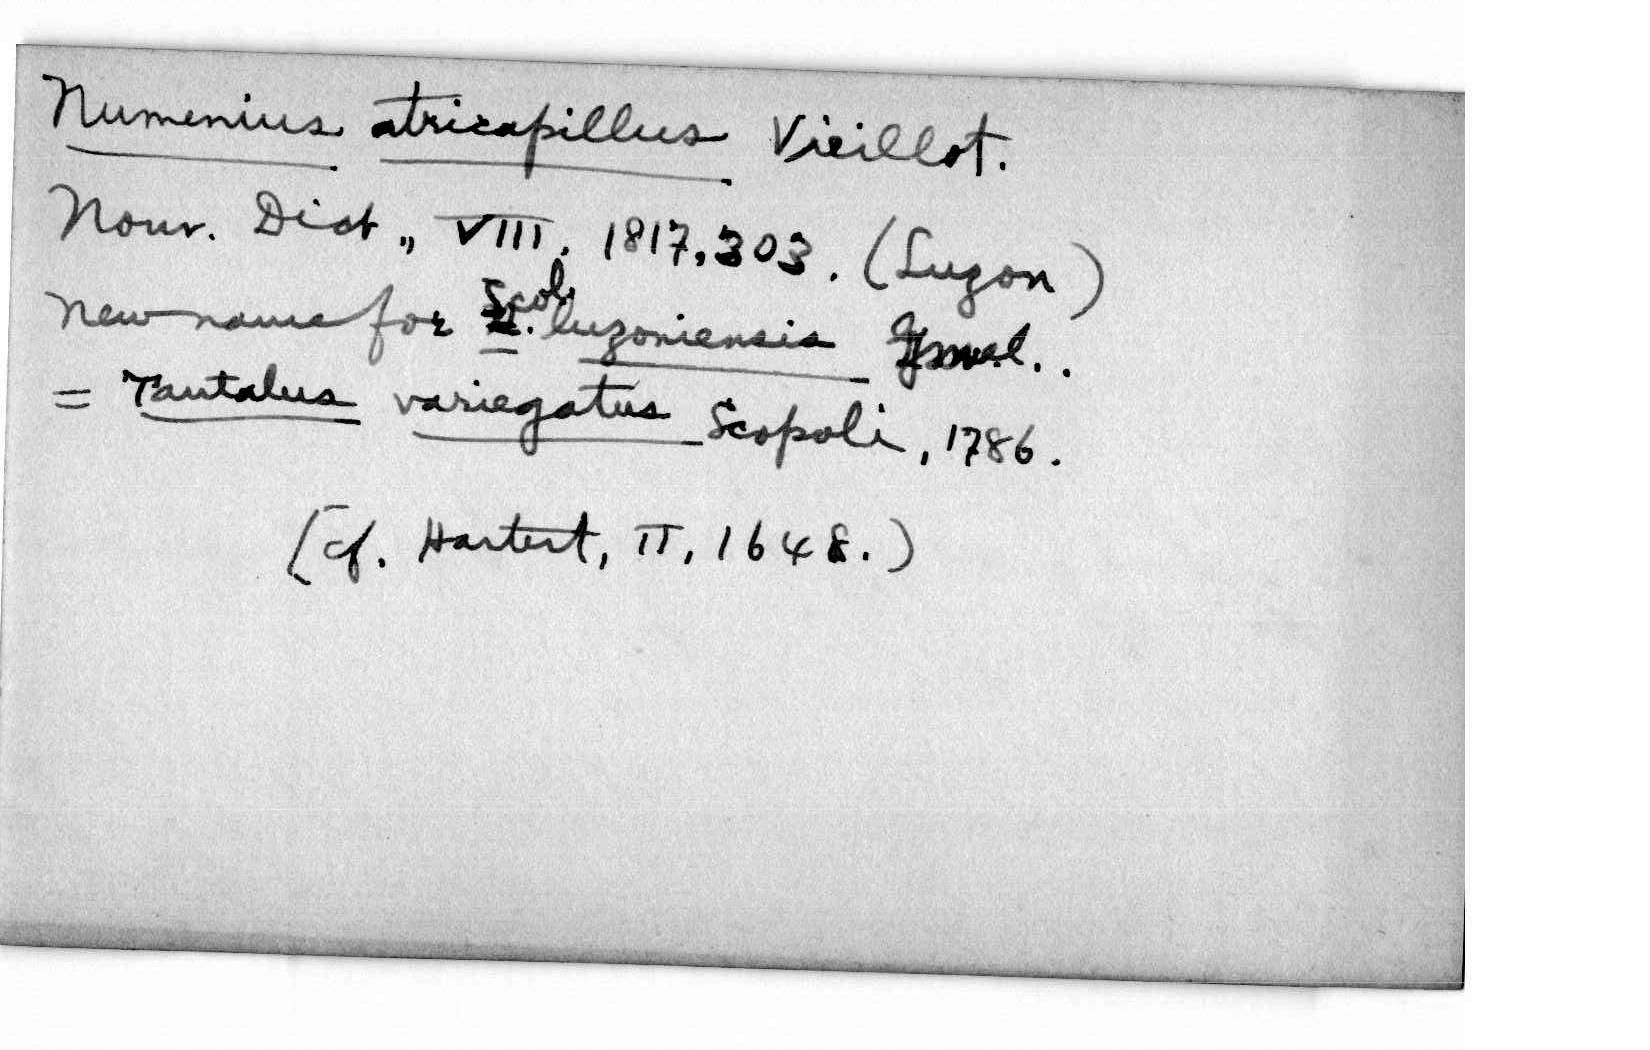 Numenius atricapillus Vieillot.
Nouv. Dict., VIII, 1817, 303. (Luzon)
New name for Scol. luzoniensis Gmel..
= Tantalus variegatus Scopoli, 1786.
(cf. Hartert, II, 1648.)